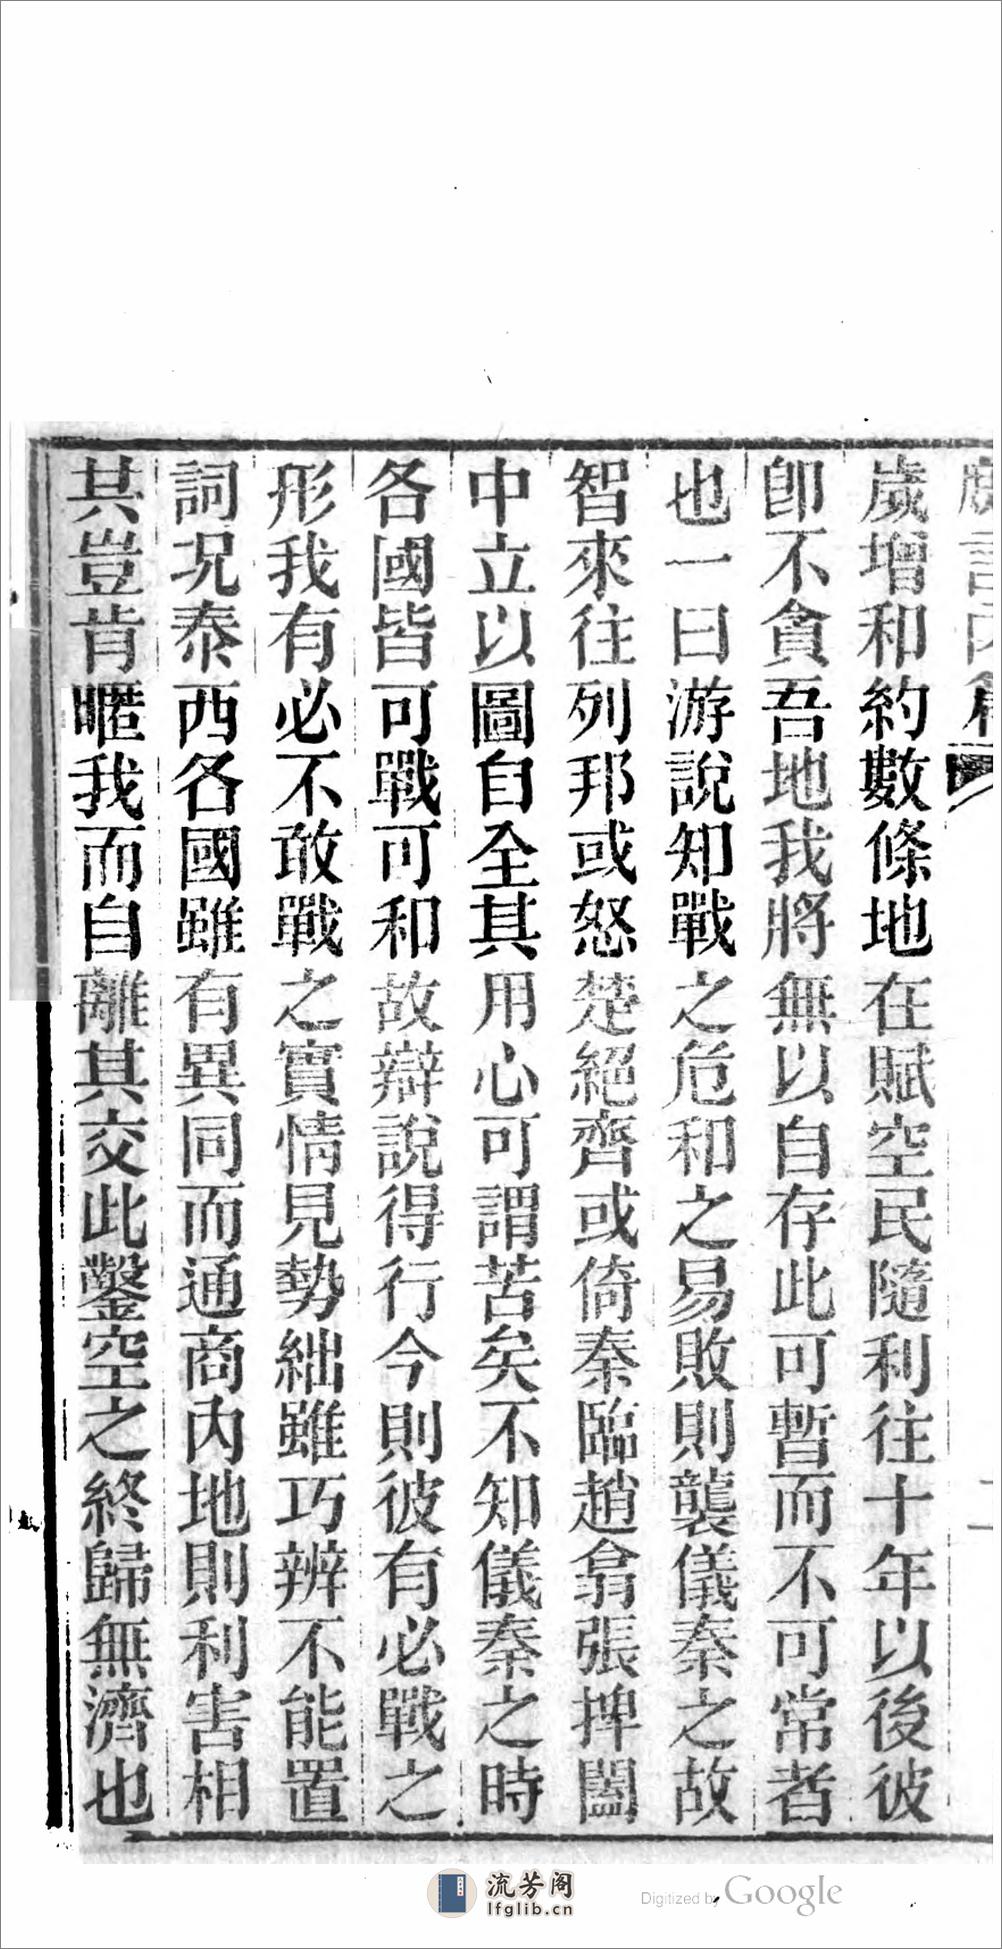 歲增和約數條地在賦空民隨利往十年以後彼
卽不貪吾地我將無以自存此可暫而不可常者
也一曰游說知戰之危和之易敗則襲儀秦之故
智來往列邦或怒楚絕齊或倚秦臨趙翕張捭闔
中立以圖自全其用心可謂苦矣不知儀秦之時
各國皆可戰可和故辯說得行今則彼有必戰之
形我有必不敢戰之實情見勢絀雖巧辨不能置
詞況泰西各國雖有異同而通商內地則利害相
其豈肯暱我而自離其交此鑿空之終歸無濟也
流芳阁
lfglib.cn
Digitized by Google